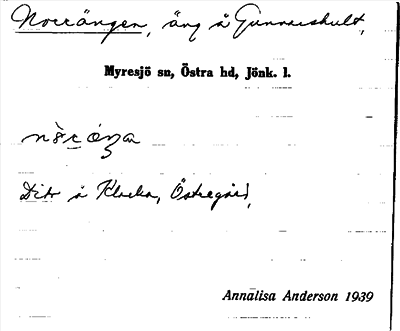 Norrängen, äng å Gunnarshult,
Myresjö sn, Östra hd, Jönk. l.
Dito å Klacka, Östregård,
Annalisa Anderson 1939